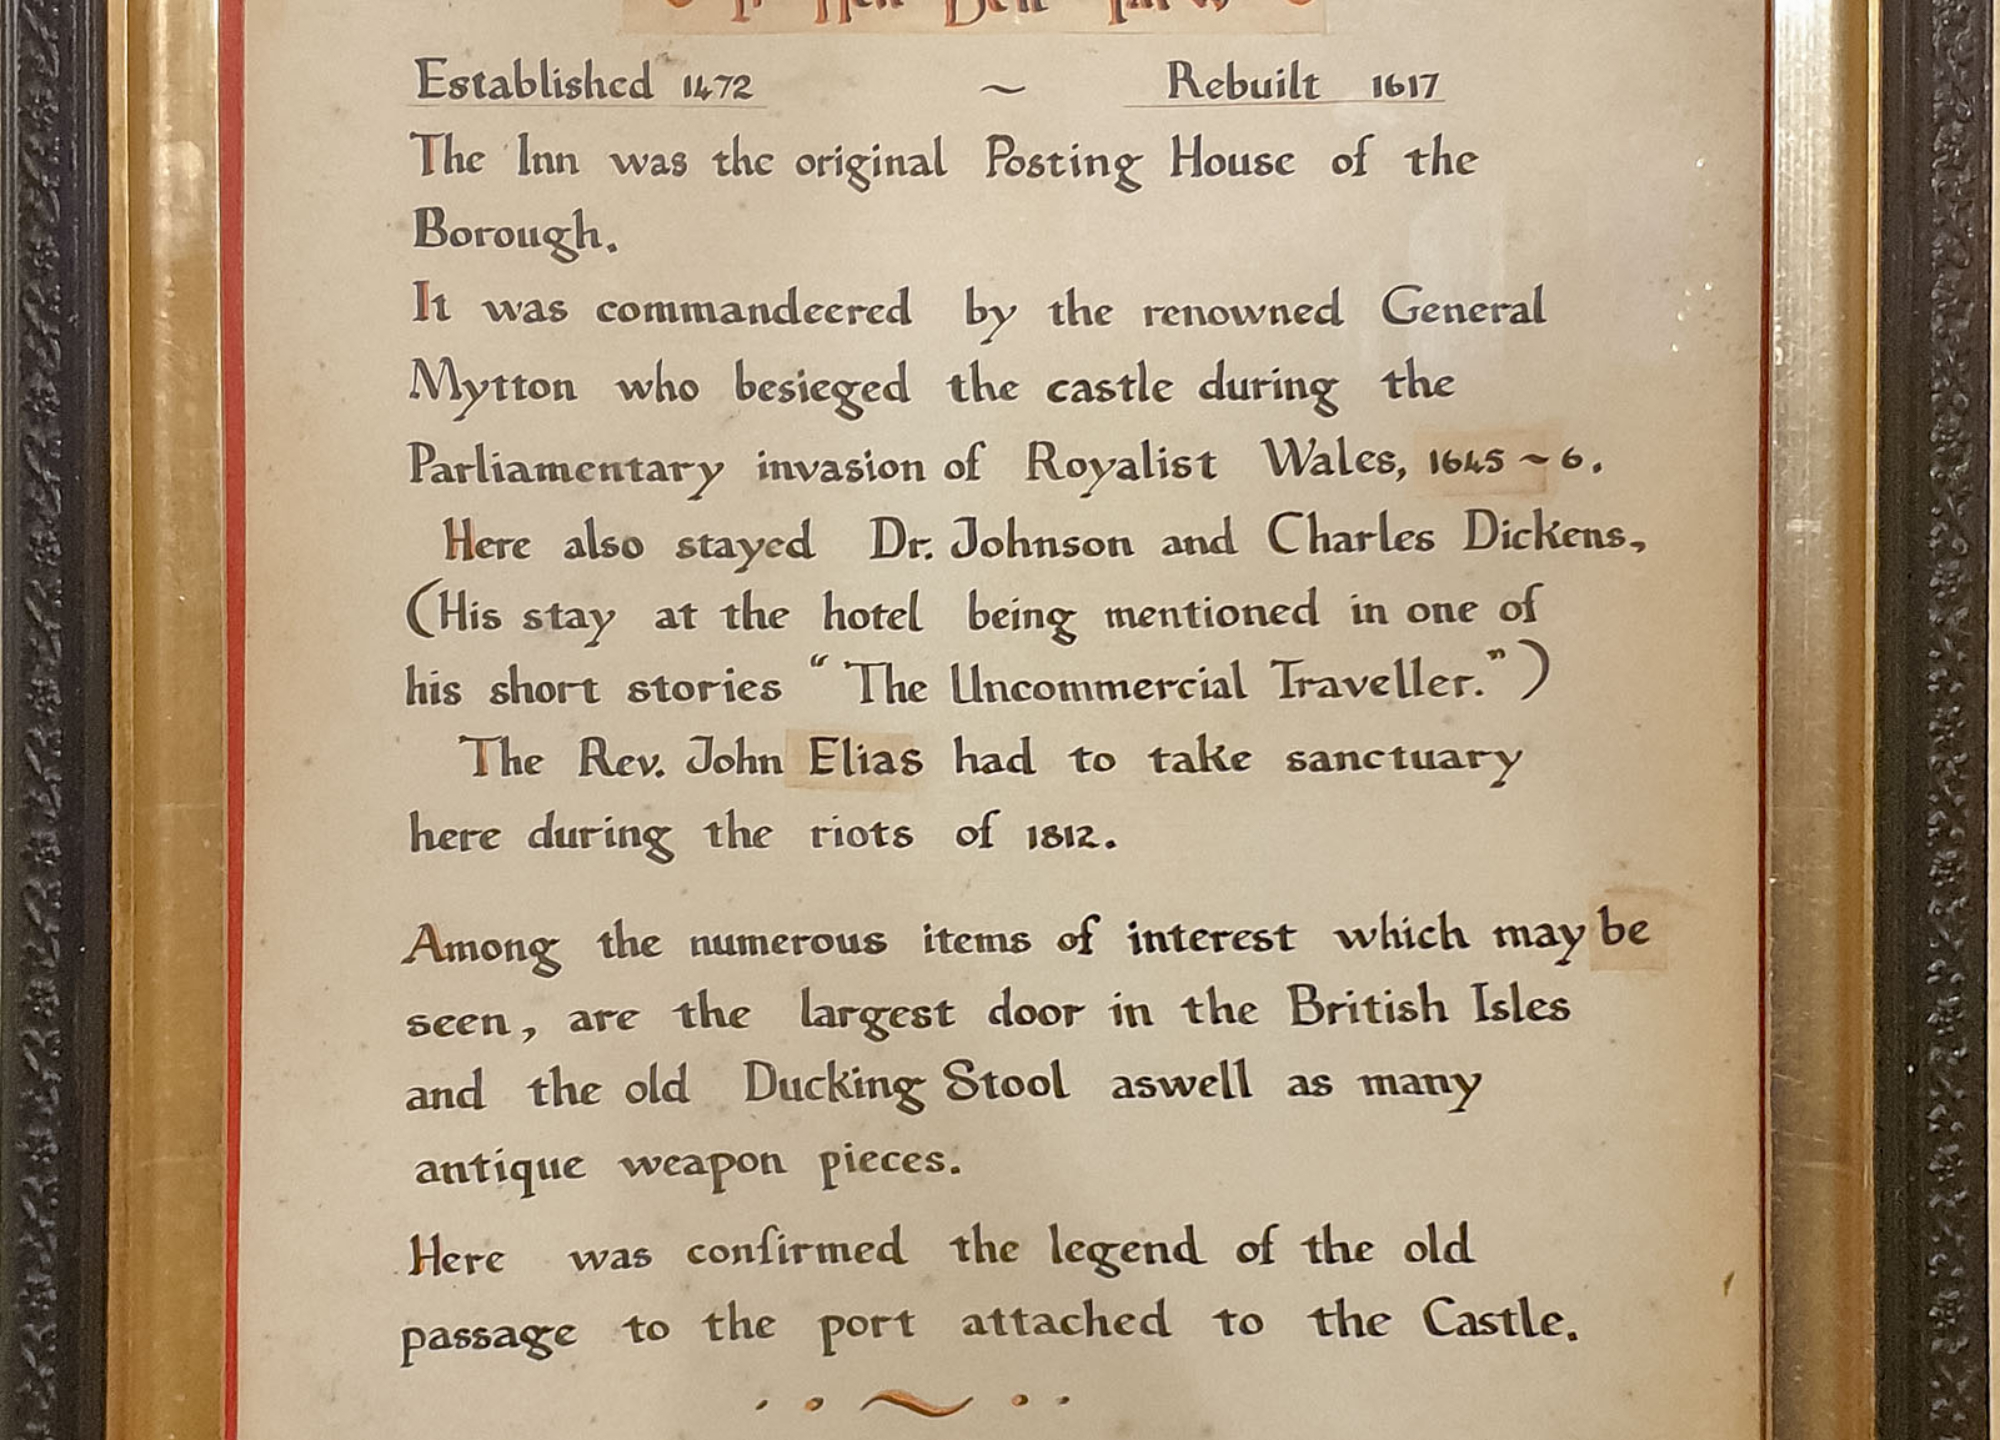 Established 1472 ~ Rebuilt 1617
The Inn was the original Posting House of the
Borough.
It was commandeered by the renowned General
Mytton who besieged the castle during the
Parliamentary invasion of Royalist Wales, 1645 ~ 6.
Here also stayed Dr. Johnson and Charles Dickens,
(His stay at the hotel being mentioned in one of
his short stories "The Uncommercial Traveller.")
The Rev. John Elias had to take sanctuary
here during the riots of 1812.
Among the numerous items of interest which may be
seen, are the largest door in the British Isles
and the old Ducking Stool aswell as many
antique weapon pieces.
Here was confirmed the legend of the old
passage to the port attached to the Castle.